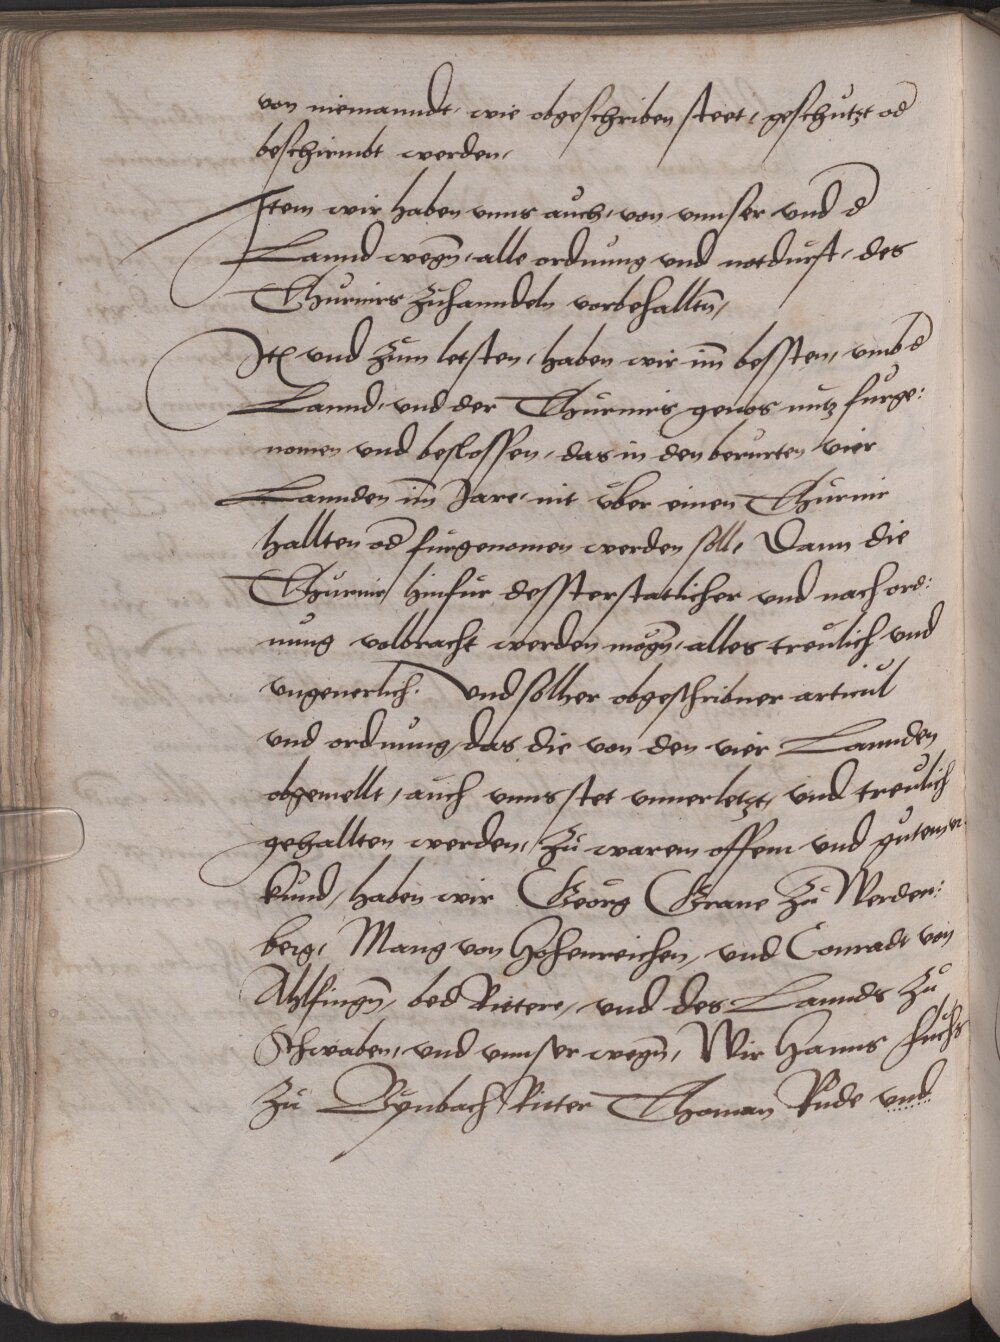 von niemanndt, wie obgeschriben steet, geschützt od
beschirmbt werden,
Item wir haben unns auch, von unnser und d
Lannd wegn, alle ordnung und notdurft, des
Thurnirs zuhanndeln vorbehalltn,
Itē und zum letsten, haben wir im̄ bessten, umb d
Lannd, und der Thurnirs genos nutz furge:
nomen und beslossen, das in den berurten vier
Lannden im̄ Jare, nit über einen Thurnir
hallten od furgenomen werden soll, Dann die
Thurnir hinfur dessterstatlicher und nach ord:
nung volbracht werden mogn, alles treulich und
ungeverlich. Und sollher obgeschribner articul
und ordnung, das die von den vier Lannden
obgemellt, auch unns stet unverletzt, und treulich
gehallten werden, zu warem offem und gutem ur:
kund, haben wir Georg Grave zu Werden:
berg, Mang von Hohenreichen, und Conradt von
Ahlfingn, bed Rittere, und des Lannds zu
Schwaben, und unnser wegn, Wir Hanns Fuchs
zu Bynbach Ritter Thoman Rude und